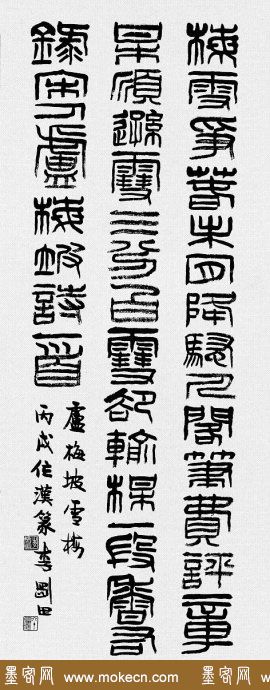 梅雪爭春未肯降騷人閣筆費評章
梅須遜雪三分白雪卻輸梅一段香右
錄宋人盧梅坡詩一首
盧梅坡雪梅
丙戌作漢篆李剛田
墨客网 www.mokecn.com 墨客网